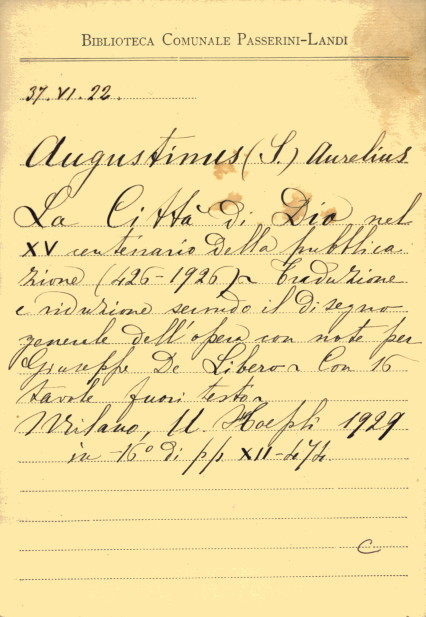 BIBLIOTECA COMUNALE PASSERINI-LANDI
37.VI.22.
Augustinus (S.) Aurelius
La Città di Dio nel
XV centenario della pubblica
zione (426-1926) ~ Traduzione
e riduzione secondo il disegno
generale dell'opera con note per
Giuseppe De Libero ~ Con 16
tavole fuori testo ~
Milano, U. Hoepli 1929
in -16° di pp XII-474.
C